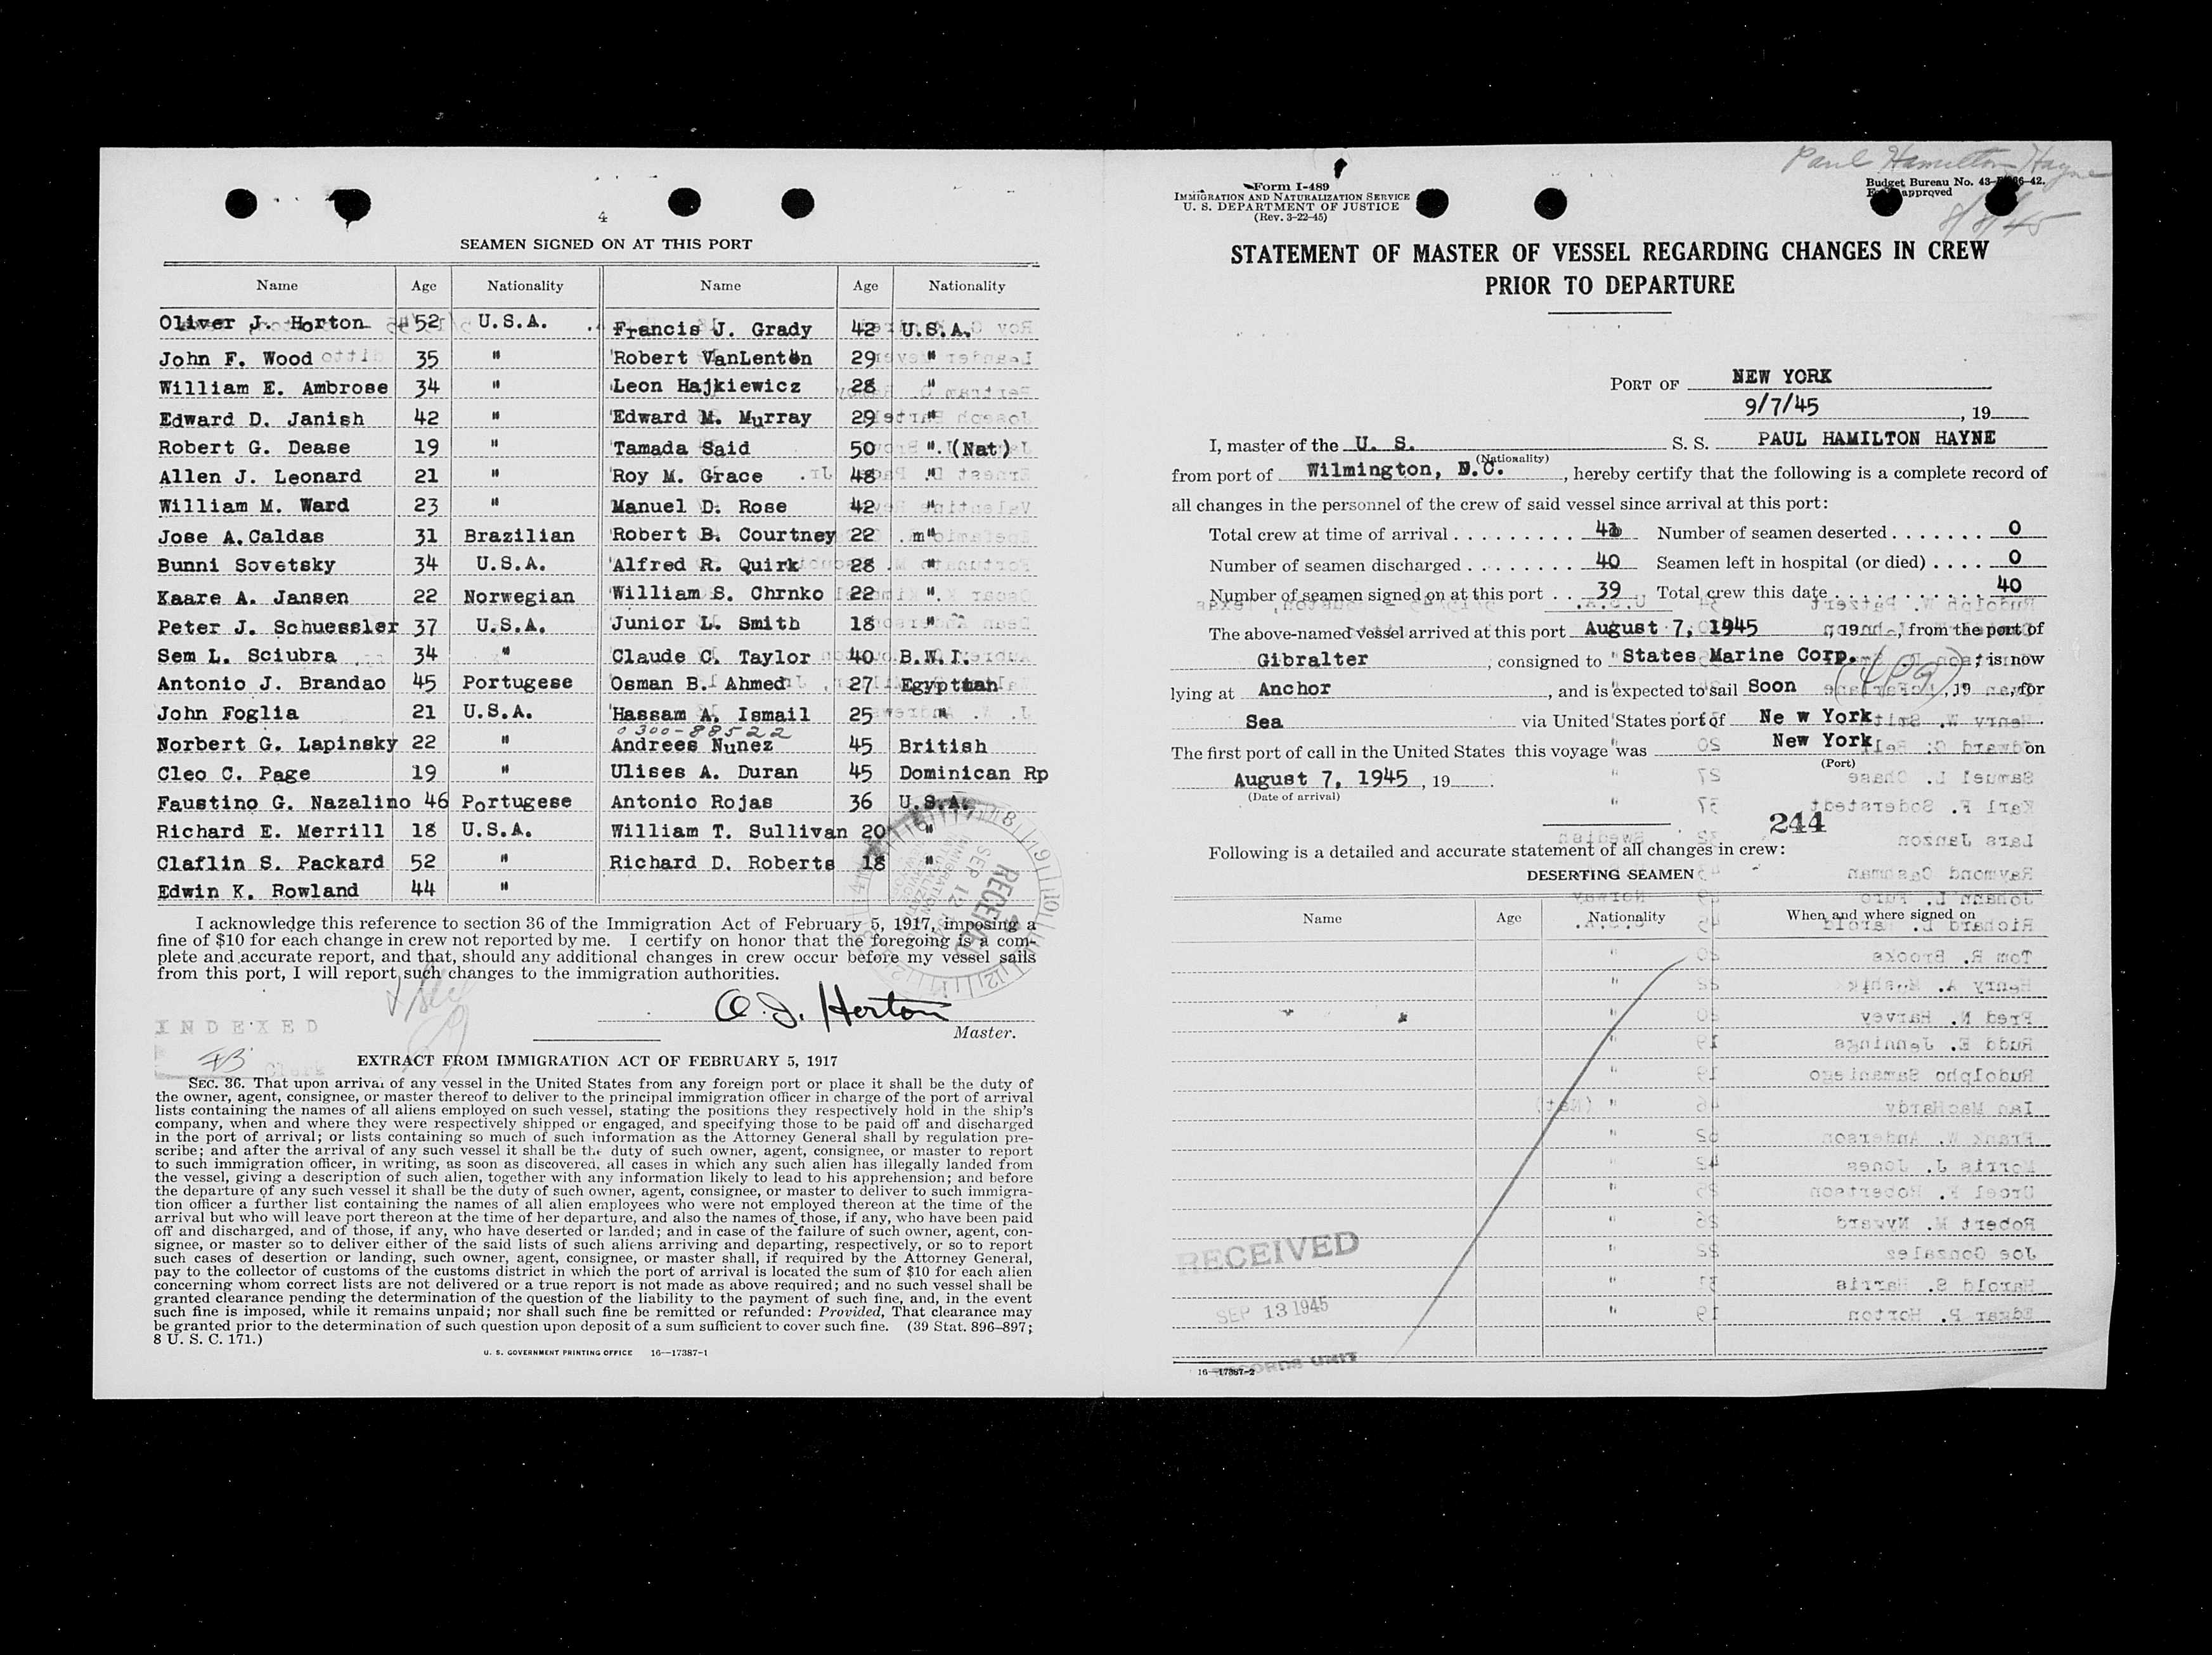 4
SEAMEN SIGNED ON AT THIS PORT
Name Age Nationality Name Age Nationality
Oliver J. Horton 52 U.S.A. Francis J. Grady 42 U.S.A.
John F. Wood 35 " Robert VanLenten 29 "
William E. Ambrose 34 " Leon Hajkiewicz 28 "
Edward D. Janish 42 " Edward M. Murray 29 "
Robert G. Dease 19 " Tamada Said 50 ". (Nat)
Allen J. Leonard 21 " Roy M. Grace 48 "
William M. Ward 23 " Manuel D. Rose 42 "
Jose A. Caldas 31 Brazilian Robert B. Courtney 22 "
Bunni Sovetsky 34 U.S.A. Alfred R. Quirk 28 "
Kaare A. Jansen 22 Norwegian William S. Chrnko 22 "
Peter J. Schuessler 37 U.S.A. Junior L. Smith 18 "
Sem L. Sciubra 34 " Claude C. Taylor 40 B.W.I.
Antonio J. Brandao 45 Portugese Osman B. Ahmed 27
John Foglia 21 U.S.A. Hassam A. Ismail 25 "
0300-88522
Norbert G. Lapinsky 22 " Andrees Nunez 45 British
Cleo C. Page 19 " Ulises A. Duran 45 Dominican Rp
Faustino G. Nazalino 46 Portugese Antonio Rojas 36 U.S.A.
Richard E. Merrill 18 U.S.A. William T. Sullivan 20 "
Claflin S. Packard 52 " Richard D. Roberts 18 "
Edwin K. Rowland 44 "
I acknowledge this reference to section 36 of the Immigration Act of February 5, 1917, imposing a
fine of $10 for each change in crew not reported by me. I certify on honor that the foregoing is a com-
plete and accurate report, and that, should any additional changes in crew occur before my vessel sails
from this port, I will report such changes to the immigration authorities.
RECEIVED
SEP 12
O. J. Horton
Master.
INDEXED
EXTRACT FROM IMMIGRATION ACT OF FEBRUARY 5, 1917
SEC. 36. That upon arrival of any vessel in the United States from any foreign port or place it shall be the duty of
the owner, agent, consignee, or master thereof to deliver to the principal immigration officer in charge of the port of arrival
lists containing the names of all aliens employed on such vessel, stating the positions they respectively hold in the ship's
company, when and where they were respectively shipped or engaged, and specifying those to be paid off and discharged
in the port of arrival; or lists containing so much of such information as the Attorney General shall by regulation pre-
scribe; and after the arrival of any such vessel it shall be the duty of such owner, agent, consignee, or master to report
to such immigration officer, in writing, as soon as discovered, all cases in which any such alien has illegally landed from
the vessel, giving a description of such alien, together with any information likely to lead to his apprehension; and before
the departure of any such vessel it shall be the duty of such owner, agent, consignee, or master to deliver to such immigra-
tion officer a further list containing the names of all alien employees who were not employed thereon at the time of the
arrival but who will leave port thereon at the time of her departure, and also the names of those, if any, who have been paid
off and discharged, and of those, if any, who have deserted or landed; and in case of the failure of such owner, agent, con-
signee, or master so to deliver either of the said lists of such aliens arriving and departing, respectively, or so to report
such cases of desertion or landing, such owner, agent, consignee, or master shall, if required by the Attorney General,
pay to the collector of customs of the customs district in which the port of arrival is located the sum of $10 for each alien
concerning whom correct lists are not delivered or a true report is not made as above required; and no such vessel shall be
granted clearance pending the determination of the question of the liability to the payment of such fine, and, in the event
such fine is imposed, while it remains unpaid; nor shall such fine be remitted or refunded: Provided, That clearance may
be granted prior to the determination of such question upon deposit of a sum sufficient to cover such fine. (39 Stat. 896-897;
8 U. S. C. 171.)
U. S. GOVERNMENT PRINTING OFFICE 16—17387-1
Paul Hamilton Hayne
8/8/45
Form I-489
IMMIGRATION AND NATURALIZATION SERVICE
U. S. DEPARTMENT OF JUSTICE
(Rev. 3-22-45)
Budget Bureau No. 43-
approved
STATEMENT OF MASTER OF VESSEL REGARDING CHANGES IN CREW
PRIOR TO DEPARTURE
PORT OF NEW YORK
9/7/45, 19
I, master of the U. S. S. S. PAUL HAMILTON HAYNE
(Nationality)
from port of Wilmington, D.C., hereby certify that the following is a complete record of
all changes in the personnel of the crew of said vessel since arrival at this port:
Total crew at time of arrival Number of seamen deserted 0
Number of seamen discharged 40 Seamen left in hospital (or died) 0
Number of seamen signed on at this port 39 Total crew this date 40
The above-named vessel arrived at this port August 7, 1945, 19, from the port of
Gibralter, consigned to States Marine Corp.; is now
lying at Anchor, and is expected to sail Soon, 19, for
Sea via United States port of Ne w York.
The first port of call in the United States this voyage was New York on
(Port)
August 7, 1945, 19.
(Date of arrival)
244
Following is a detailed and accurate statement of all changes in crew:
DESERTING SEAMEN
Name Age Nationality When and where signed on
RECEIVED
SEP 13 1945
RECORDS UNIT
16—17387-2